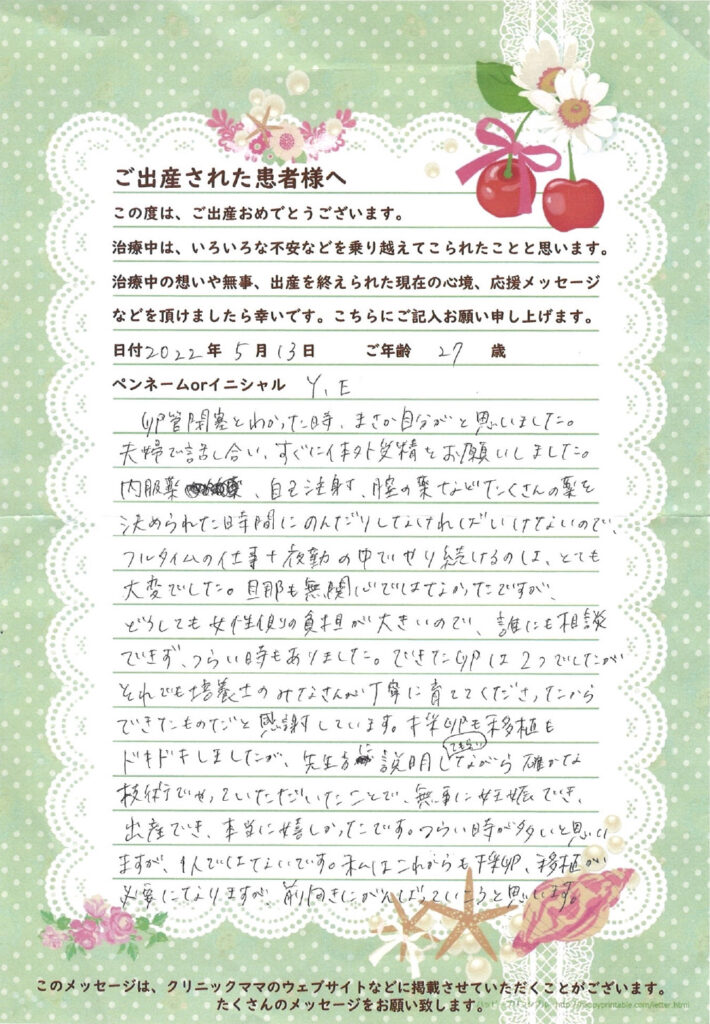 ご出産された患者様へ
この度は、ご出産おめでとうございます。
治療中は、いろいろな不安などを乗り越えてこられたことと思います。
治療中の想いや無事、出産を終えられた現在の心境、応援メッセージ
などを頂けましたら幸いです。こちらにご記入お願い申し上げます。
日付2022年 5月13日 ご年齢 27 歳
ペンネームorイニシャル Y、E
卵管閉塞とわかった時、まさか自分がと思いました。
夫婦で話し合い、すぐに体外受精をお願いしました。
内服薬、自己注射、腟の薬などたくさんの薬を
決められた時間にのんだりしなければいけないので、
フルタイムの仕事+夜勤の中でやり続けるのは、とても
大変でした。旦那も無関心ではなかったですが、
どうしても女性側の負担が大きいので、誰にも相談
できず、つらい時もありました。できた卵は2つでしたが
それでも培養士のみなさんが丁寧に育ててくださったから
できたものだと感謝しています。採卵も移植も
ドキドキしましたが、先生方に説明してもらいながら確かな
技術でやっていただいたことで、無事に妊娠でき、
出産でき、本当に嬉しかったです。つらい時が多いと思い
ますが、1人ではないです。私はこれからも採卵、移植が
必要になりますが、前向きにがんばっていこうと思います。
このメッセージは、クリニックママのウェブサイトなどに掲載させていただくことがございます。
たくさんのメッセージをお願い致します。
http://happyprintable.com/letter.html